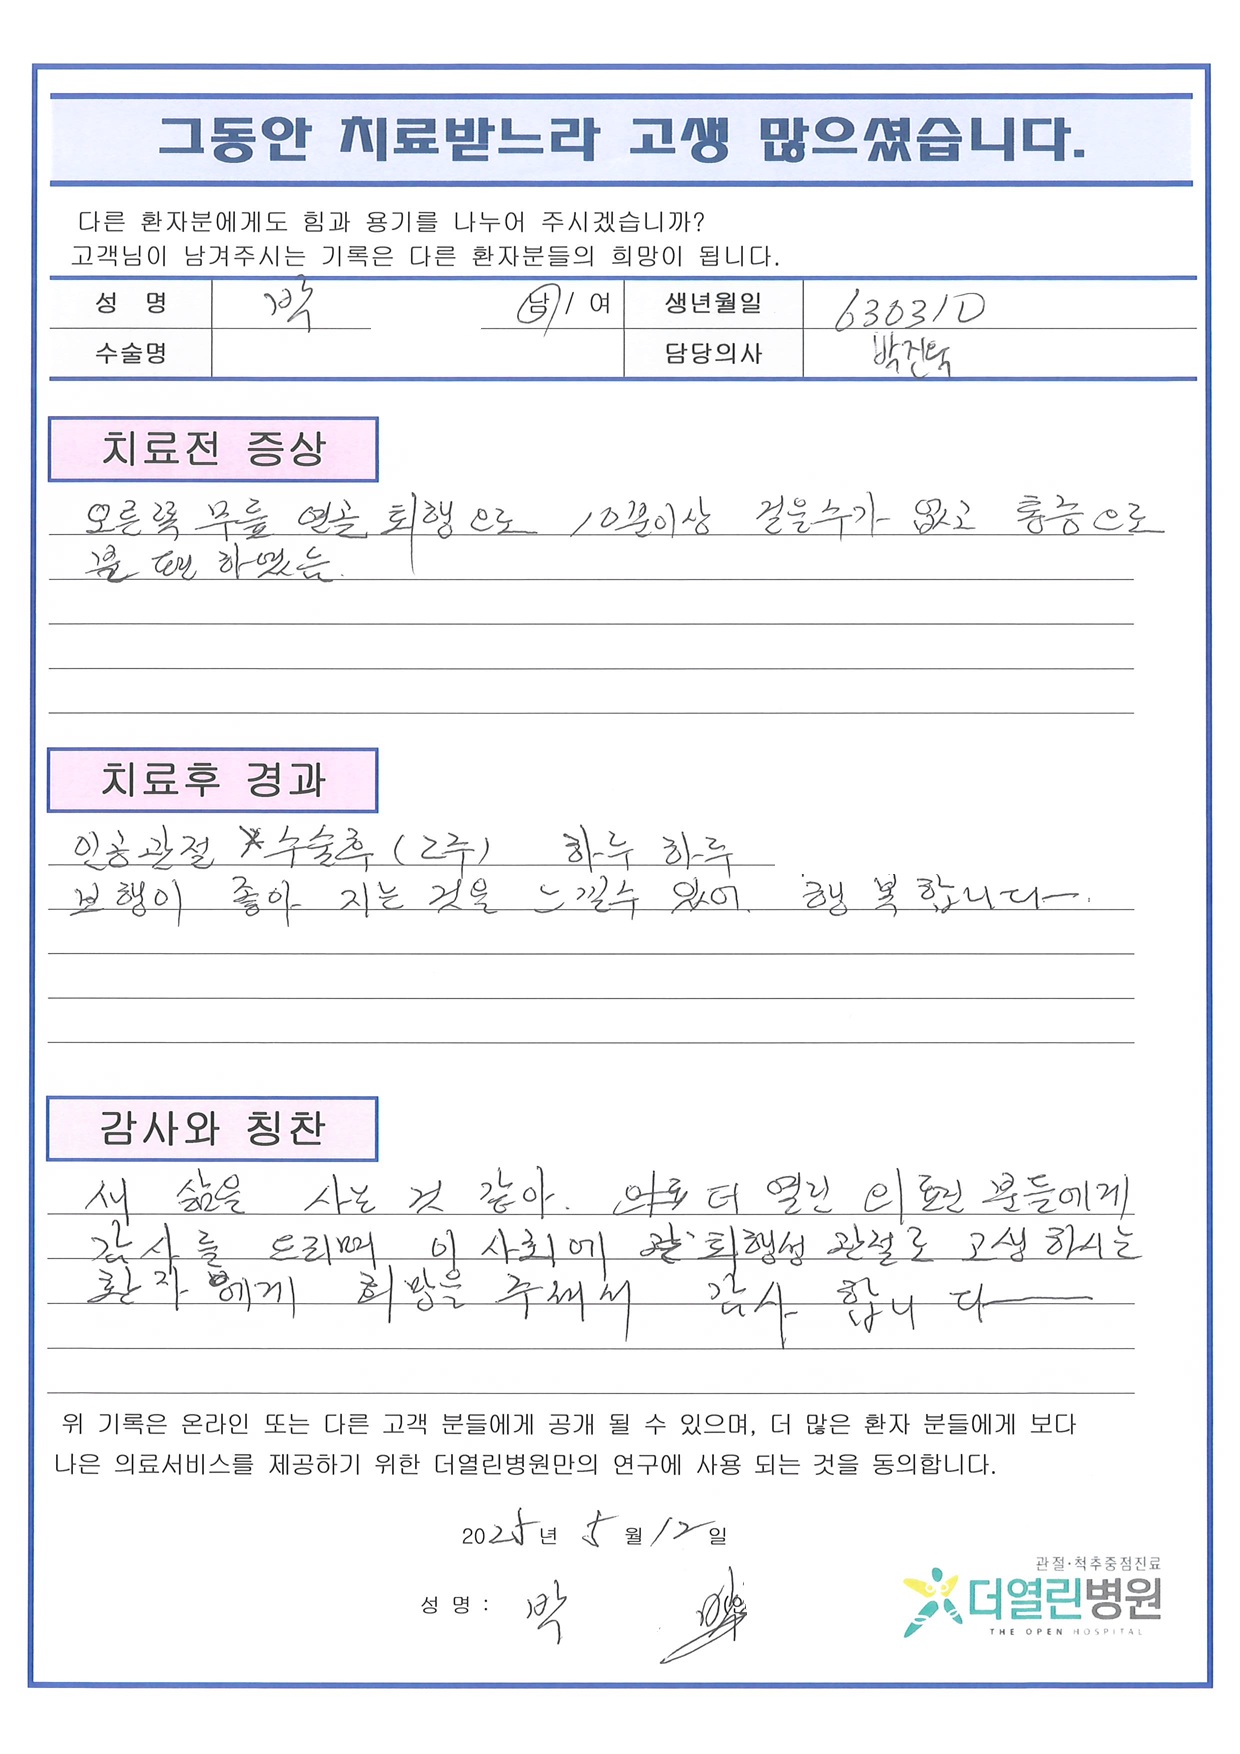 그동안 치료받느라 고생 많으셨습니다.
다른 환자분에게도 힘과 용기를 나누어 주시겠습니까?
고객님이 남겨주시는 기록은 다른 환자분들의 희망이 됩니다.
성 명 박 남 / 여 생년월일 630310
수술명 담당의사 박진욱
치료전 증상
오른쪽 무릎 연골 퇴행으로 10분이상 걸을수가 없고 통증으로
하였음.
치료후 경과
인공관절 수술후 (2주) 하루 하루
보행이 좋아 지는 것을 느낄수 있어. 행복합니다.
감사와 칭찬
새 삶을 사는 것 같아. 더 열린 의료진 분들에게
감사를 드리며 이 사회에 퇴행성 관절로 고생 하시는
환자에게 희망을 주셔서 감사 합니다
위 기록은 온라인 또는 다른 고객 분들에게 공개 될 수 있으며, 더 많은 환자 분들에게 보다
나은 의료서비스를 제공하기 위한 더열린병원만의 연구에 사용 되는 것을 동의합니다.
2025년 5월 12일
성 명 : 박
관절·척추중점진료
더열린병원
THE OPEN HOSPITAL